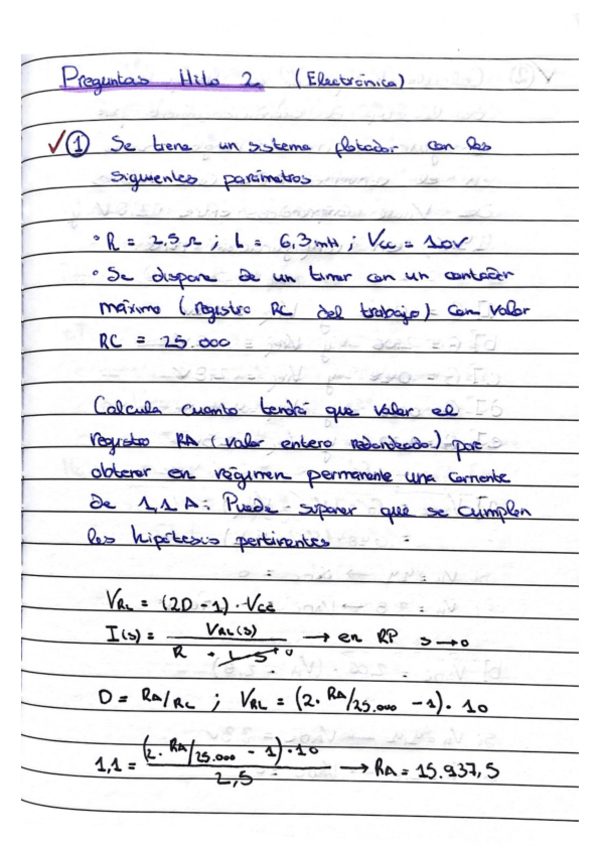 Preguntas Hilo 2 (Electrónica)
✓ ① Se tiene un sistema flotador con los
siguientes parámetros
• R = 2,5 Ω ; L = 6,3 mH ; Vcc = 10V
• Se dispone de un timer con un contador
máximo (registro RC del trabajo) con valor
RC = 25.000
Calcula cuanto tendrá que valer el
registro RA (valor entero redondeado) para
obtener en régimen permanente una corriente
de 1,1 A. Puede suponer que se cumplen
las hipótesis pertinentes
VRL = (2D - 1) · Vcc
I(s) = VRL(s) / R + L S → 0 → en RP s → 0
D = RA/RC ; VRL = (2 · RA/25.000 - 1) · 10
1,1 = (2 · RA/25.000 - 1) · 10 / 2,5 → RA = 15.937,5